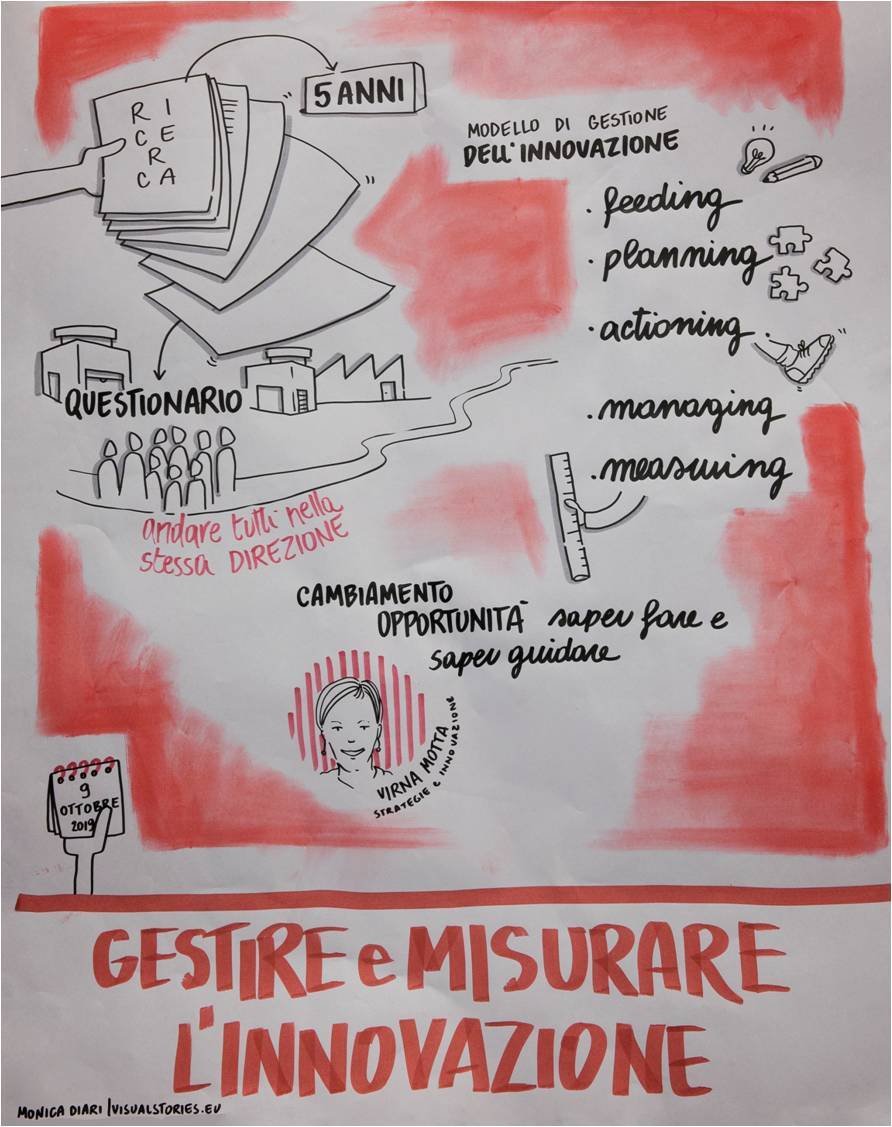 RICERCA
5 ANNI
MODELLO DI GESTIONE
DELL'INNOVAZIONE
· feeding
· planning
· actioning
· managing
· measuring
QUESTIONARIO
andare tutti nella
stessa DIREZIONE
CAMBIAMENTO
OPPORTUNITÀ saper fare e
saper guidare
VIRNA MOTTA
STRATEGIE e INNOVAZIONE
9
OTTOBRE
2019
GESTIRE e MISURARE
L'INNOVAZIONE
MONICA DIARI | VISUALSTORIES.EU